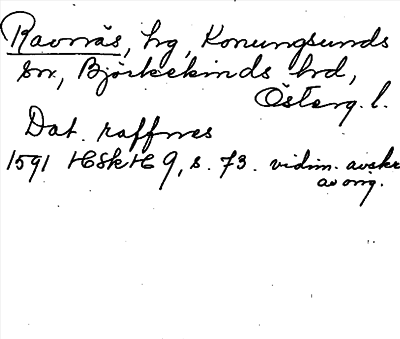 Ravnäs, hg, Konungsunds
sn, Björkekinds hd,
Österg. l.
Dat. raffnes
1591 HSkH 9, s. 73. vidim. avskr.
av orig.